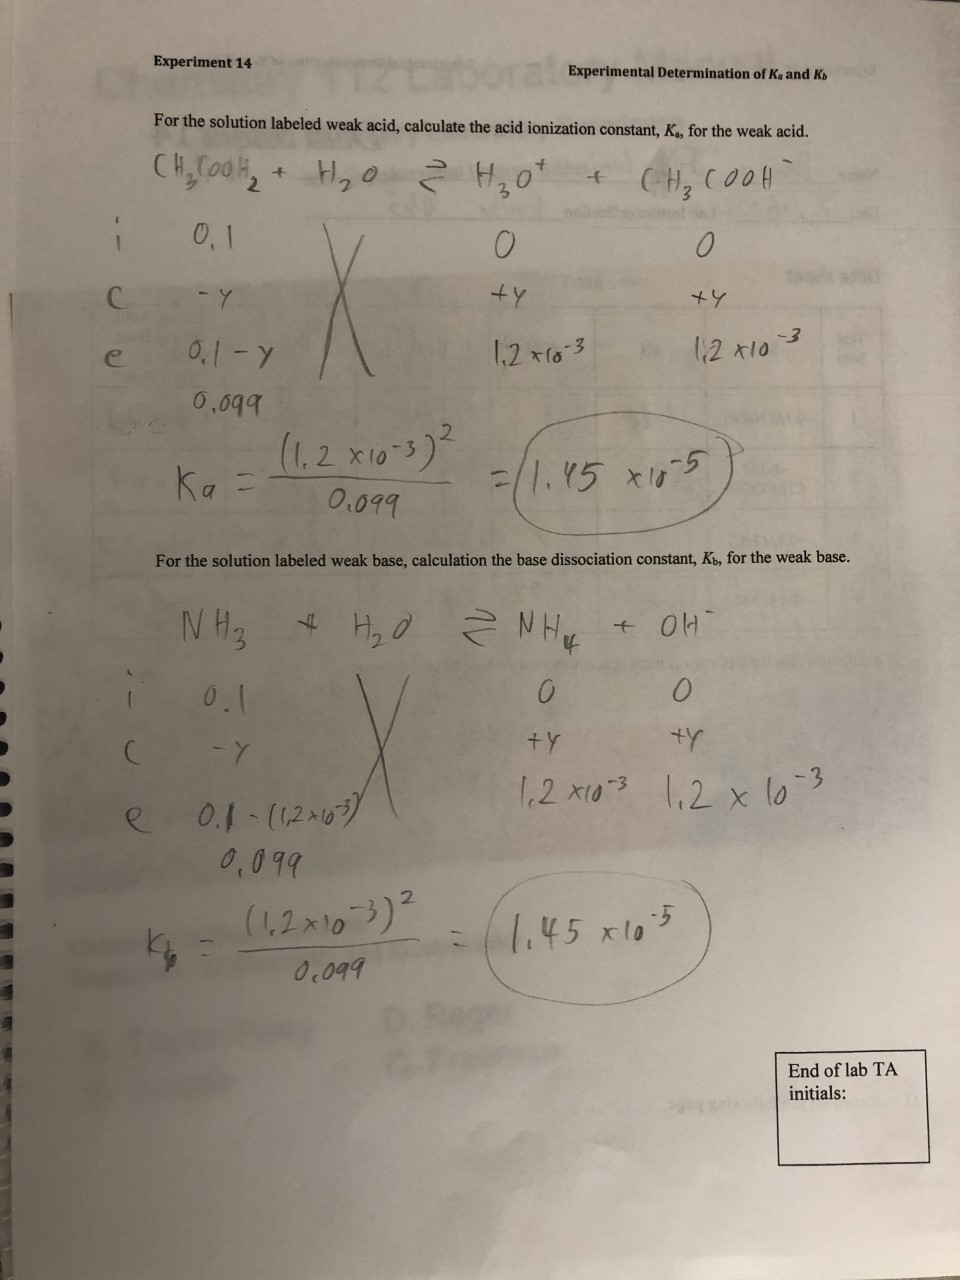 Experiment 14
Experimental Determination of Kₐ and K_b
For the solution labeled weak acid, calculate the acid ionization constant, Kₐ, for the weak acid.
CH₃COOH₂ + H₂O ⇌ H₃O⁺ + CH₃COOH⁻
i 0.1 0 0
C -y +y +y
e 0.1-y 1.2 x10⁻³ 1.2 x10⁻³
0.099
Ka = (1.2 x10⁻³)² / 0.099 = 1.45 x10⁻⁵
For the solution labeled weak base, calculation the base dissociation constant, K_b, for the weak base.
NH₃ + H₂O ⇌ NH₄ + OH⁻
i 0.1 0 0
C -y +y +y
e 0.1-(1.2x10⁻³) 1.2 x10⁻³ 1.2 x 10⁻³
0.099
K_b = (1.2x10⁻³)² / 0.099 = 1.45 x10⁻⁵
End of lab TA
initials: